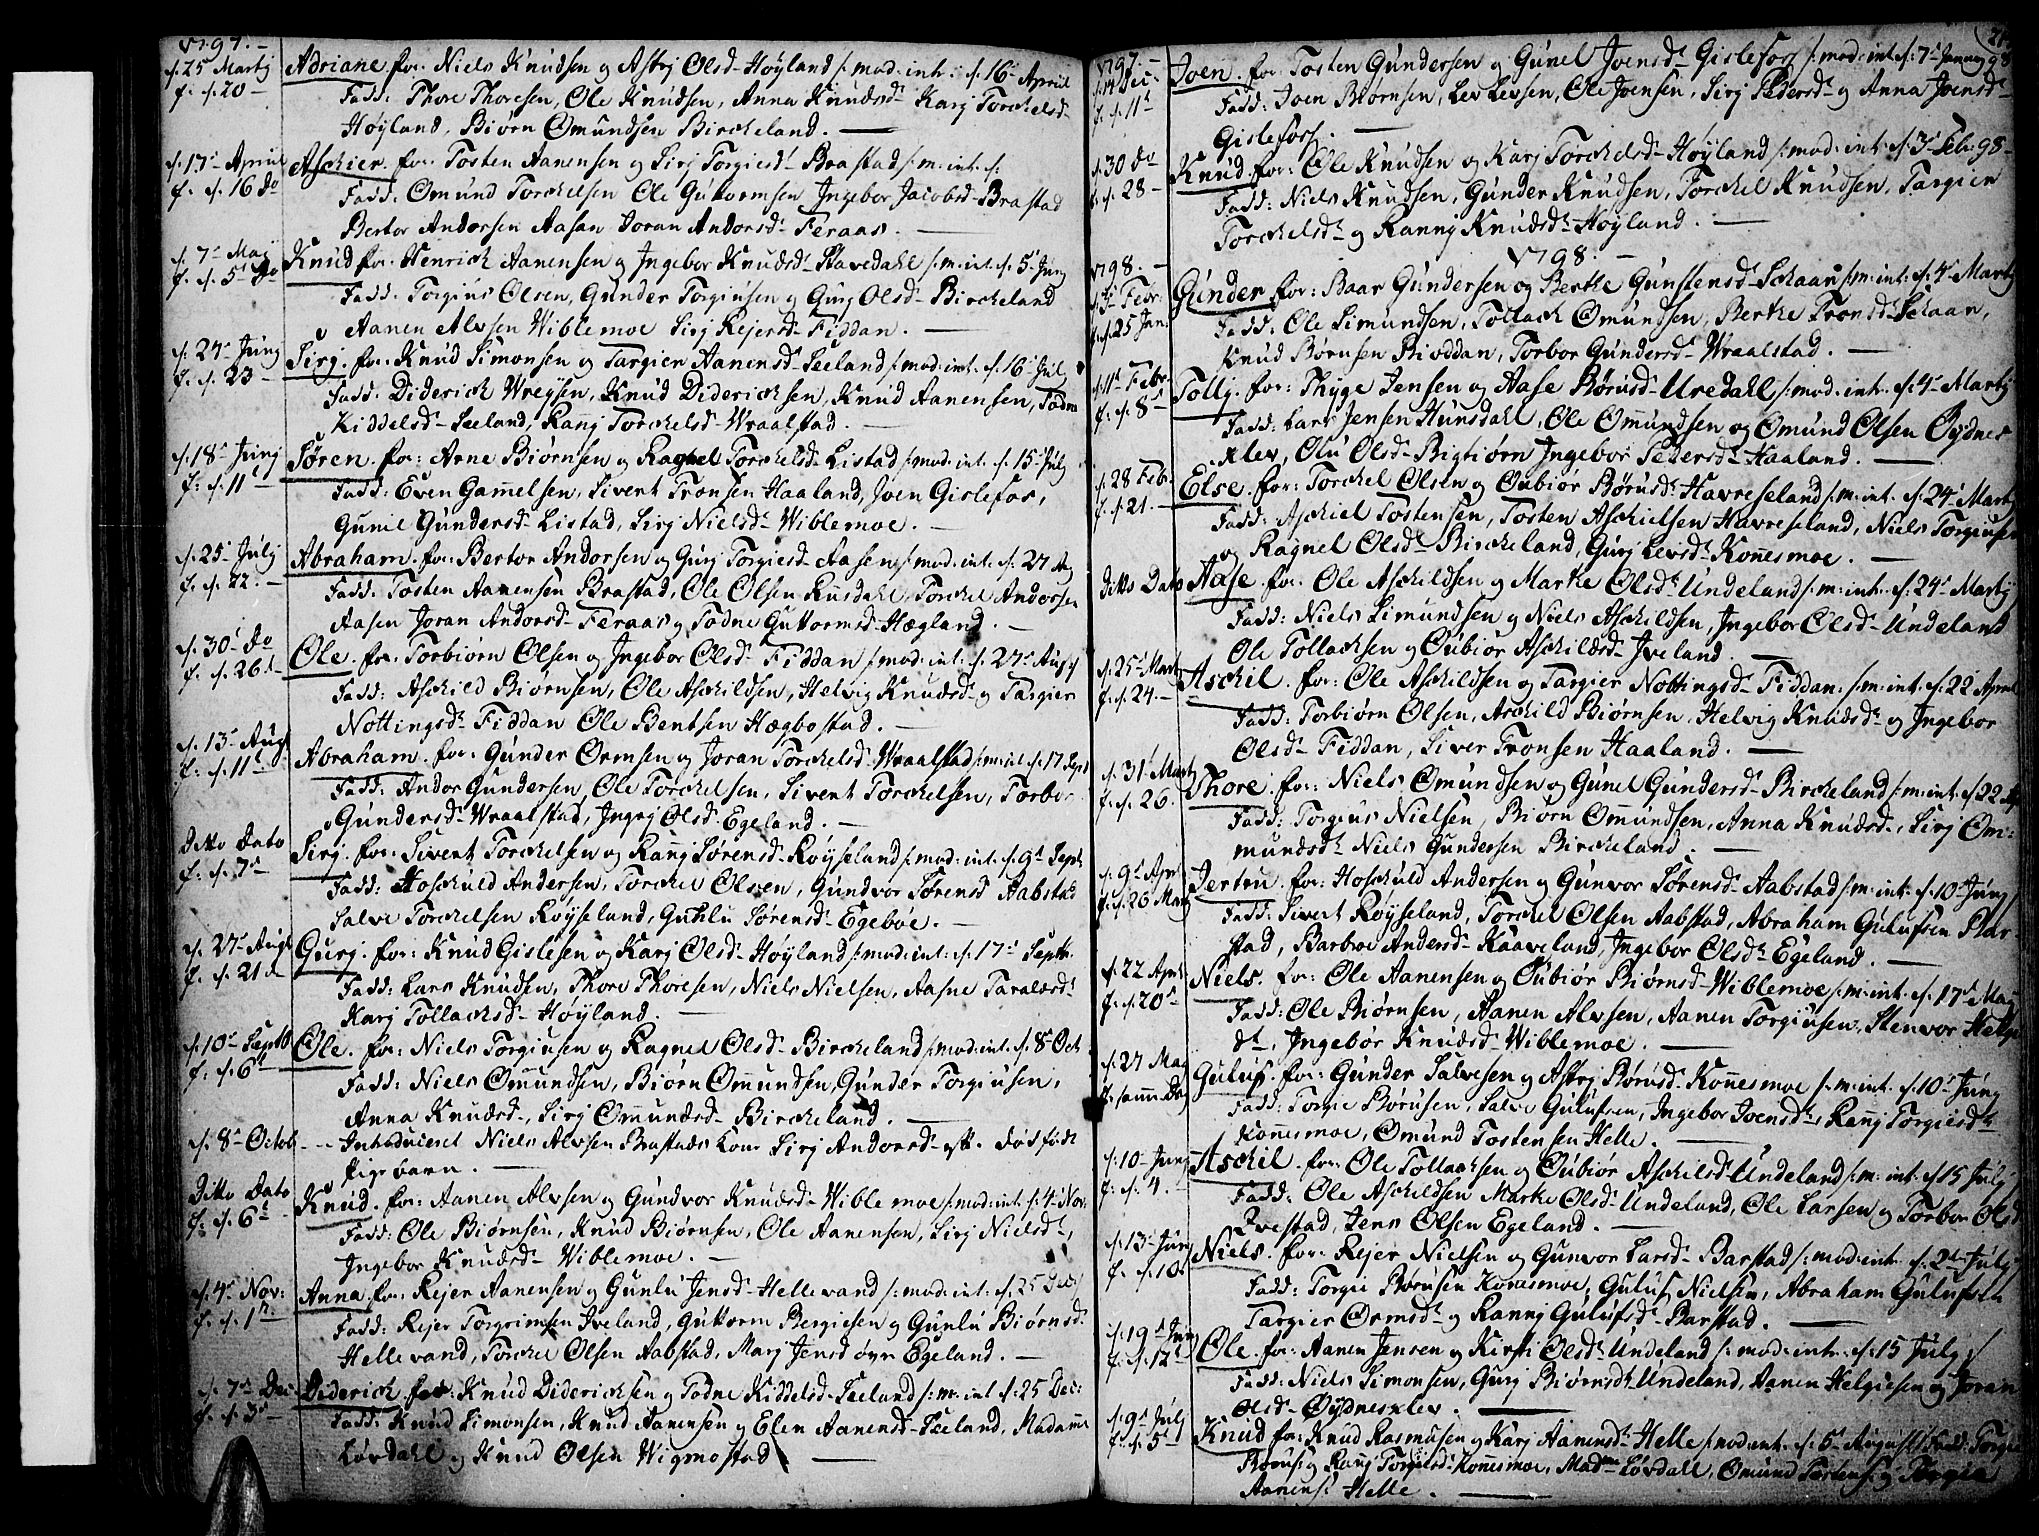 1797.
d. 25 Martj Adriane. for: Niels Knudsen og Astrj Olsd. Høyland /: mod: int: d. 16 April
f. d. 20 Fadd: Thore Thoresen, Ole Knudsen, Anna Knudsd. Karj Torckelsd.
Høyland, Biørn Omundsen Birckeland.
d. 17 April Aschier. for: Tosten Aanensen og Sirj Torgiesd. Brastad /: m: int: d.
f. d. 16 do Fadd: Omund Torckelsen Ole Guttormsen Ingebor Jacobsd. Brastad
Bertor Andorsen Aasen Joran Andorsd. Feraas.
d. 7 Maj Knud for: Henrich Aanensen og Ingebor Knudsd. Stavedahl /: m: int: d. 5 Junj
f. d. 5 do Fadd: Torgius Olsen, Gunder Torgiusen og Gurj Olsd. Birckeland
Aanen Alvsen Wiblemoe Sirj Rejersd. Fiddan.
d. 24 Junj Sirj. for: Knud Simonsen og Targier Aanensd. Seeland /: mod: int: d. 16 Julj
f. d. 23 Fadd: Diderich Wreysen, Knud Diderichsen, Knud Aanensen, Todne
Kiddelsd. Seeland, Ranj Torckelsd. Wraalstad.
d. 18 Junj Søren. for: Arne Biørnsen og Ragnel Torckelsd. Listad /: mod: int: d. 15 Julj
f. d. 11 Fadd: Even Gamelsen, Sivert Tronsen Haaland, Joen Gislefos,
Gunil Gundersd. Listad, Sirj Nielsd. Wiblemoe.
d. 25 Julj Abraham. for: Bertor Andorsen og Gurj Torgiesd. Aasen /: mod: int: d. 27 Aug
f. d. 22. Fadd: Tosten Aanensen Brastad, Ole Olsen Rusdahl, Torckel Andorsen
Aasen Joran Andorsd. Feraas og Todne Guttormsd. Hægland.
d. 30 do Ole. for: Torbiørn Olsen og Ingebor Olsd. Fiddan /: mod: int: d. 27 Aug
f. d. 26 Fadd: Aschild Biørnsen, Ole Aschildsen, Helvig Knudsd. og Targier
Nottingsd. Fiddan Ole Bentsen Hægbostad.
d. 13 Aug Abraham. for: Gunder Ormsen og Joran Torckelsd. Wraalstad /: m: int: d. 17 Sept
f. d. 11 Fadd: Andor Gundersen, Ole Torckelsen, Sivert Torckelsen, Torbor
Gundersd. Wraalstad, Ingrj Olsd. Egeland.
Ditto Dato Sirj. for: Sivert Torckelsen og Ranj Sørensd. Røyseland /: mod: int: d. 9 Sept
f. d. 7 Fadd: Hoschuld Andersen, Torckel Olsen, Gundvor Sørensd Aabstad
Salve Torckelsen Røyseland, Gunlu Sørensd. Egebøe.
d. 27 Aug Gurj. for: Knud Gislesen og Karj Olsd. Høyland /: mod: int: d. 17 Septb.
f. d. 21 Fadd: Lars Knudsen, Thore Thoresen, Niels Nielsen, Aasne Taraldsd.
Karj Tollacksd. Høyland.
d. 10 Septb Ole. for: Niels Torgiusen og Ragnel Olsd. Birckeland /: mod: int: d. 8 Oct
f. d. 6 Fadd: Niels Omundsen, Biørn Omundsen, Gunder Torgiusen,
Anna Knudsd., Sirj Omundsd. Birckeland.
d. 8 Octob. Introduceret Niels Alvsen Brastads Kone Sirj Andorsd. dødfødt
Pigebarn.
Ditto Dato Knud. for: Aanen Alvsen og Gundvor Knudsd. Wiblemoe /: mod: int: d. 4 Nov:
f. d. 6 Fadd: Ole Biørnsen, Knud Biørnsen, Ole Aanensen, Sirj Nielsd.,
Ingebor Knudsd. Wiblemoe.
d. 4 Nov: Anna for: Rejer Aanensen og Gunlu Jensd. Hellevand /: mod: int: d. 25 Dec
f. d. 1 Fadd: Rejer Torgrimsen Iveland, Guttorm Bergiesen og Gunlu Biørnsd.
Hellevand, Torckel Olsen Aabstad, Marj Jensd. Egeland.
d. 7 Dec Diderich for: Knud Diderichsen og Todne Kiddelsd. Seeland /: m: int: d. 25 Dec:
f. d. 3 Fadd: Knud Simonsen, Knud Aanensen og Elen Aanensd. Seeland, Madame
Løvdahl og Knud Olsen Wigmostad
1797.
d. 14 Dec: Joen. for: Tosten Gundersen og Gunel Joensd. Gislefos /: mod: int: d. 7 Januarj 98
f. d. 11 Fadd: Joen Biørnsen, Lev Levsen, Ole Joensen, Sirj Pedersd. og Anna Joensd.
Gislefoss.
d. 30 do Knud for: Ole Knudsen og Karj Torckelsd. Høyland /: mod: int: d. 3 Feb: 98
f. d. 28 Fadd: Niels Knudsen, Gunder Knudsen, Torckel Knudsen, Targier
Torckelsd. og Rannj Knudsd. Høyland.
1798.
1798.
Febr: Gunder for: Baar Gundersen og Berthe Gunstensd. Schaar /: m: int: d. 4 Martj
f. d. 25 Jan: Fadd: Ole Simundsen, Tollack Omundsen, Berthe Tronsd. Schaar,
Knud Børusen Bioddan, Torbor Gundersd. Wraalstad.
d. 11 Febr. Tollj. for: Thyge Jensen og Aase Børusd. Uredahl /: mod: int: d. 4 Martj
f. d. 8 Fadd: Lars Jensen Hunsdahl, Ole Omundsen og Omund Olsen Øydnes
klev, Olu Olsd. Bigtiørn Ingebor Pedersd. Haaland.
d. 28 Feb. Else. for: Torckel Olsen og Oubiør Børusd. Havreseland /: m: int: d. 24 Martj
f. d. 21. Fadd: Aschiel Tostensen, Tosten Aschielsen Havreseland, Niels Torgiusen
og Ragnel Olsd. Birckeland, Gurj Levsd. Konnesmoe.
Ditto Dato Aase. for: Ole Aschildsen og Marthe Olsd. Undeland /: m: int: d. 24 Martj
Fadd: Niels Simundsen og Niels Aschildsen, Ingebor Olsd. Undeland
Ole Tollacksen og Oubiør Aschildsd. Iveland.
d. 25 Mart Aschil. for: Ole Aschildsen og Targier Nottingsd. Fiddan: /: m: int: d. 22 April
f. d. 24. Fadd: Torbiørn Olsen, Aschild Biørnsen, Helvig Knudsd. og Ingebor
Olsd. Fiddan, Siver Tronsen Haaland.
d. 31 Martj Thore. for: Niels Omundsen og Gunel Gundersd. Birckeland /: m: int: d. 22 Ap
f. d. 26. Fadd: Torgius Nielsen, Biørn Omundsen, Anna Knudsd., Sirj Om-
mundsd. Niels Gundersen Birckeland.
d. 9 Apr Jertru. for: Hoschuld Andersen og Gunvor Sørensd. Aabstad /: m: int: d. 10 Junj
f. d. 26 Martj Fadd: Sivert Røyseland, Torckel Olsen Aabstad, Abraham Gulufsen Bar
stad, Barbroe Andersd. Kaaveland, Ingebor Olsd. Egeland.
d. 22 Apr. Niels. for: Ole Aanensen og Oubiør Biørnsd. Wiblemoe /: m: int: d. 17 Maj
f. d. 20 Fadd: Ole Biørnsen, Aanen Alvsen, Aanen Torgiusen, Stenvor Helge
d., Ingebor Knudsd. Wiblemoe.
d. 27 Maj Gulus. for: Gunder Salvesen og Astrj Børusd. Konnesmoe /: m: int: d. 10 Junj
f. samme Dag Fadd: Torgie Børusen, Salve Gulufsen, Ingebor Joensd., Ranj Torgiesd.
Konnesmoe, Omund Tostensen Helle.
d. 10 Junj Aschil. for: Ole Tollacksen og Oubiør Aschilsd. Undeland /: m: int: d. 15 Julj
f. d. 4. Fadd: Ole Aschildsen Marthe Olsd. Undeland, Ole Larsen og Torbor Olsd
Ivestad, Jens Olsen Egeland.
d. 13 Junj Niels. for: Rejer Nielsen og Gunvor Larsd. Barstad /: mod: int: d. 2 Julj
f. d. 10 Fadd: Torgie Børusen Konesmoe, Gulus Nielsen, Abraham Gulufsen
Targier Ormsd. og Rannj Gulufsd. Barstad.
d. 19 Junj Ole. for: Aanen Jensen og Kirsti Olsd. Undeland /: mod: int: d. 15 Julj
f. d. 12 Fadd: Niels Simonsen, Gurj Biørnsd. Undeland, Aanen Helgiesen og Joran
Olsd. Øydnesklev.
d. 9 Julj Knud for: Knud Rasmusen og Karj Aanensd. Helle /: mod: int: d. 5 Augustj Fadd: Torgie
f. d. 5 Børus. og Ranj Torgiesd. Konnesmoe, Madm Løvdall, Omund Tostens. og Torgie
Aanens. Helle.